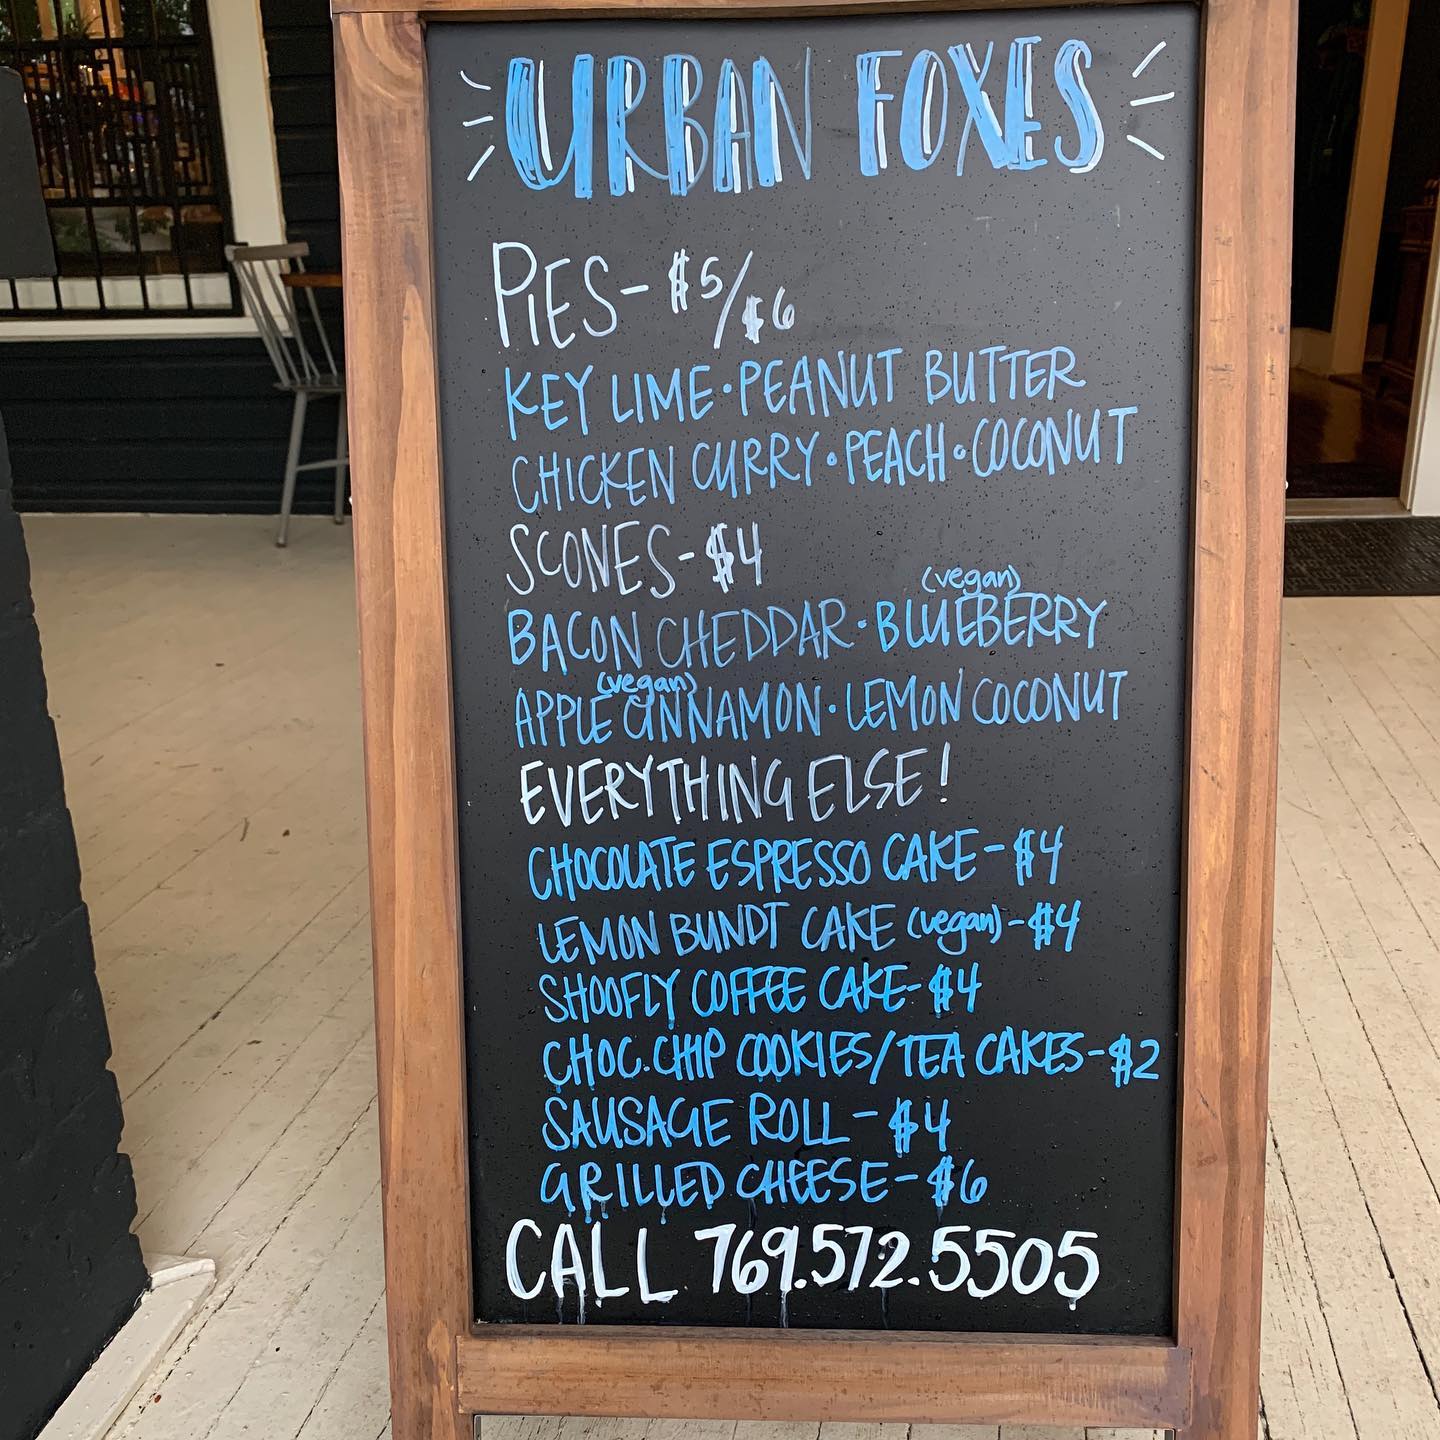 URBAN FOXES
PIES - $5/$6
KEY LIME • PEANUT BUTTER
CHICKEN CURRY • PEACH • COCONUT
SCONES - $4
(vegan)
BACON CHEDDAR • BLUEBERRY
(vegan)
APPLE CINNAMON • LEMON COCONUT
EVERYTHING ELSE!
CHOCOLATE ESPRESSO CAKE - $4
LEMON BUNDT CAKE (vegan) - $4
SHOOFLY COFFEE CAKE - $4
CHOC. CHIP COOKIES/TEA CAKES - $2
SAUSAGE ROLL - $4
GRILLED CHEESE - $6
CALL 769.572.5505